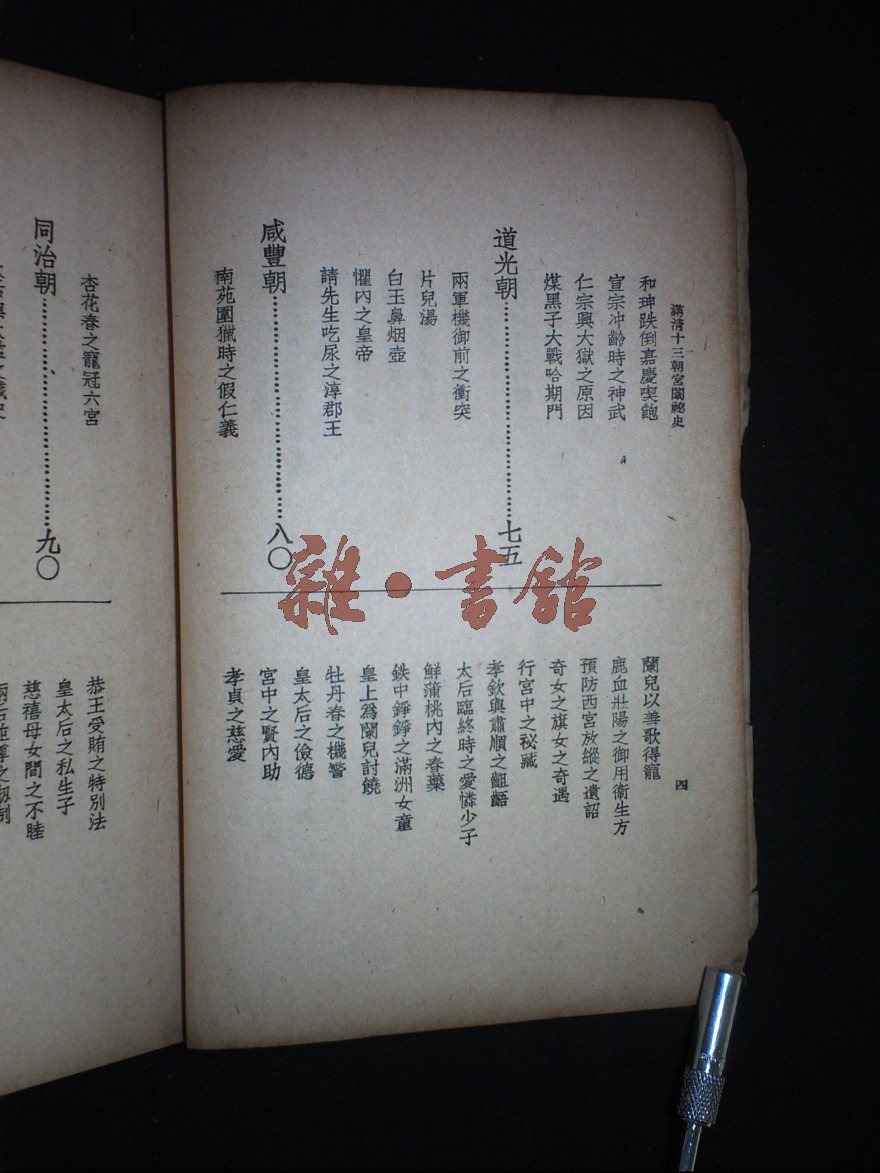 滿清十三朝宮闈祕史
和珅跌倒嘉慶喫飽
宣宗冲齡時之神武
仁宗興大獄之原因
煤黑子大戰哈期門
道光朝……七五
兩軍機御前之衝突
片兒湯
白玉鼻烟壺
懼內之皇帝
請先生吃尿之淳郡王
咸豐朝……八〇
南苑圍獵時之假仁義
四
蘭兒以善歌得寵
鹿血壯陽之御用衛生方
預防西宮放縱之遺詔
奇女之旗女之奇遇
行宮中之祕藏
孝欽與肅順之齟齬
太后臨終時之愛憐少子
鮮蒲桃內之春藥
鉄中錚錚之滿洲女童
皇上爲蘭兒討饒
牡丹春之機警
皇太后之儉德
宮中之賢內助
孝貞之慈愛
杏花春之寵冠六宮
同治朝……九〇
恭王受賄之特別法
皇太后之私生子
慈禧母女間之不睦
雜·書舘